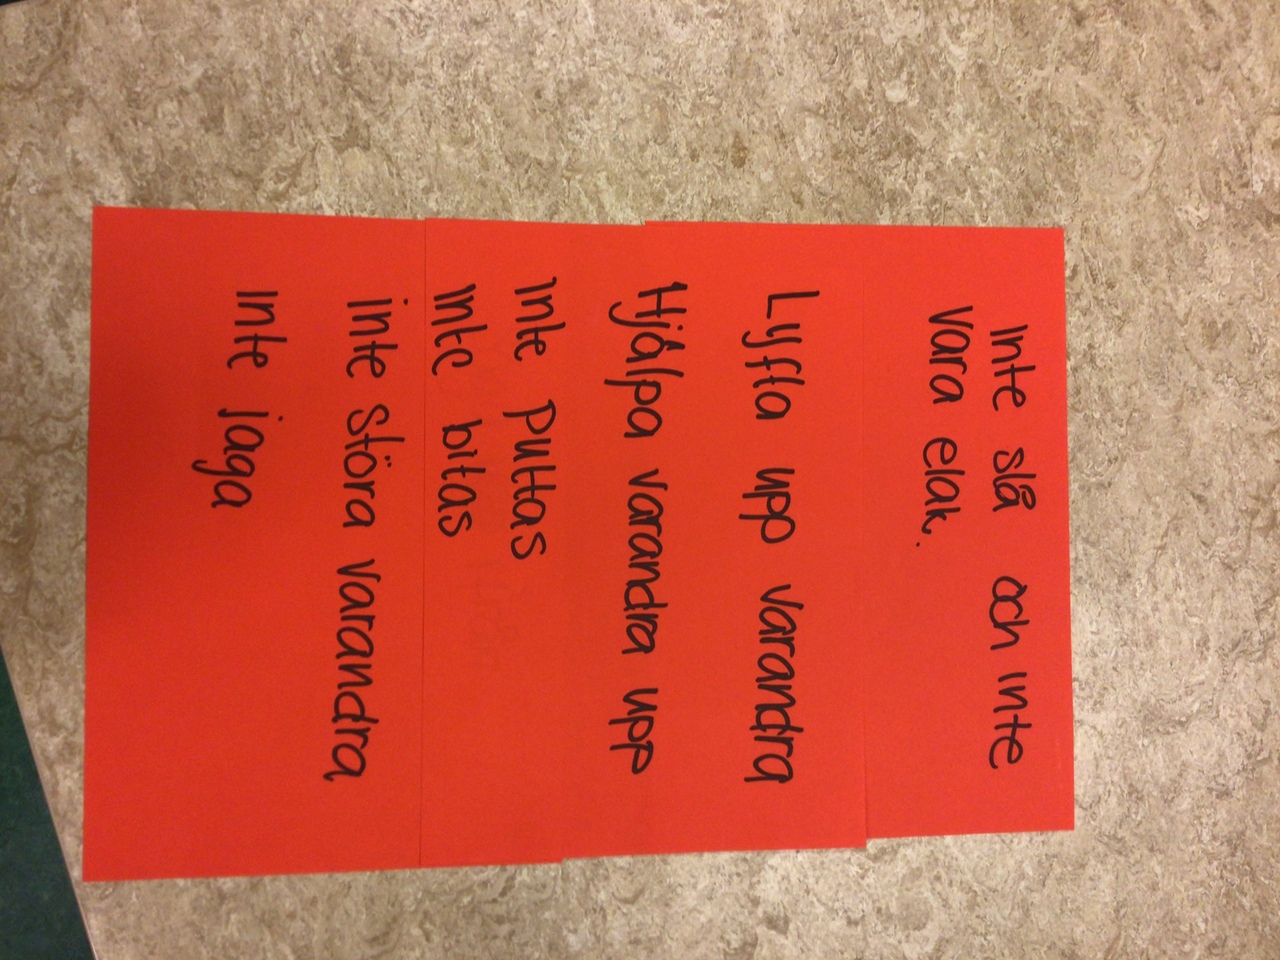 inte slå och inte
vara elak.
Lyfta upp varandra
Hjälpa varandra upp
inte puttas
inte bitas
inte störa varandra
inte jaga